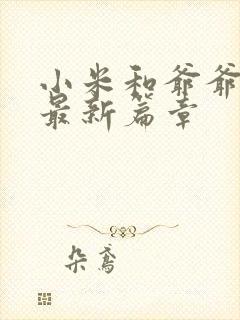 小米和爷爷
最新篇章
朵鸢